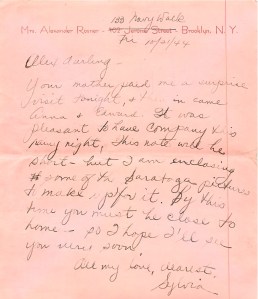 133 Navy Walk
Mrs. Alexander Rosner - Street - Brooklyn, N. Y.
Fri 10/21/44
Alex Darling -
Your mother paid me a surprise
visit tonight, & in came
Anna & Edward. It was
pleasant to have company & is
going right, This note will be
short - but I am enclosing
some of the Saratoga pictures
to make up for it. By this
time you must be close to
home - so I hope I'll see
you very soon
All my love, dearest,
Sylvia